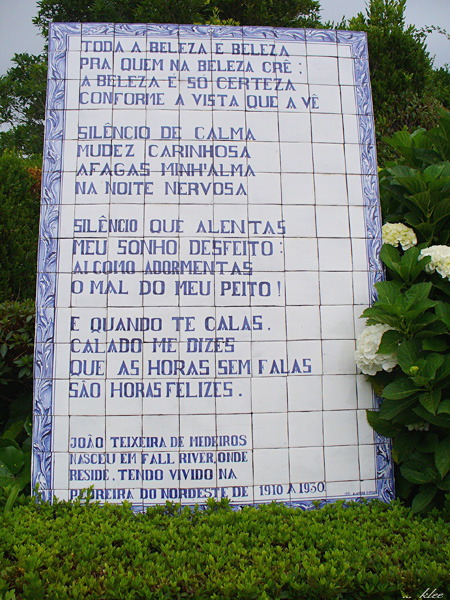 TODA A BELEZA É BELEZA
PRA QUEM NA BELEZA CRÊ;
A BELEZA É SÓ CERTEZA
CONFORME A VISTA QUE A VÊ
SILÊNCIO DE CALMA
MUDEZ CARINHOSA
AFAGAS MINH'ALMA
NA NOITE NERVOSA
SILÊNCIO QUE ALENTAS
MEU SONHO DESFEITO:
AI COMO ADORMENTAS
O MAL DO MEU PEITO!
E QUANDO TE CALAS.
CALADO ME DIZES
QUE AS HORAS SEM FALAS
SÃO HORAS FELIZES.
JOÃO TEIXEIRA DE MEDEIROS
NASCEU EM FALL RIVER, ONDE
RESIDE. TENDO VIVIDO NA
PEDREIRA DO NORDESTE DE 1910 A 1930
klee